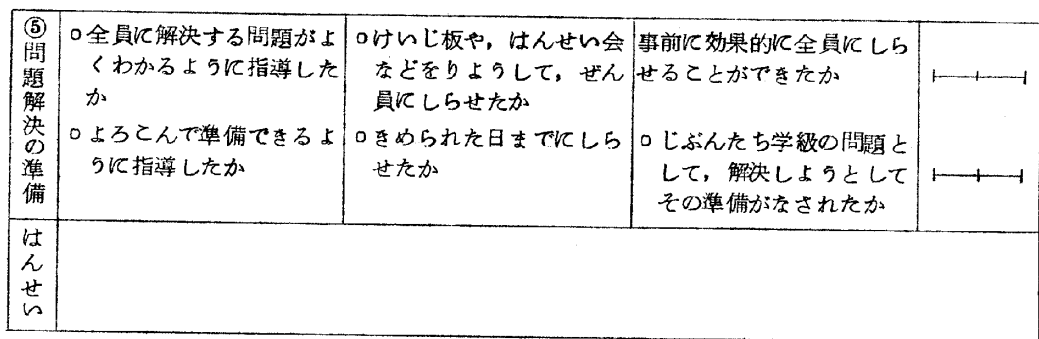 ⑤問題解決の準備
○全員に解決する問題がよ
くわかるように指導した
か
○よろこんで準備できるよ
うに指導したか
○けいじ板や，はんせい会
などをりようして，ぜん
員にしらせたか
○きめられた日までにしら
せたか
事前に効果的に全員にしら
せることができたか
○じぶんたち学級の問題と
して，解決しようとして
その準備がなされたか
はんせい